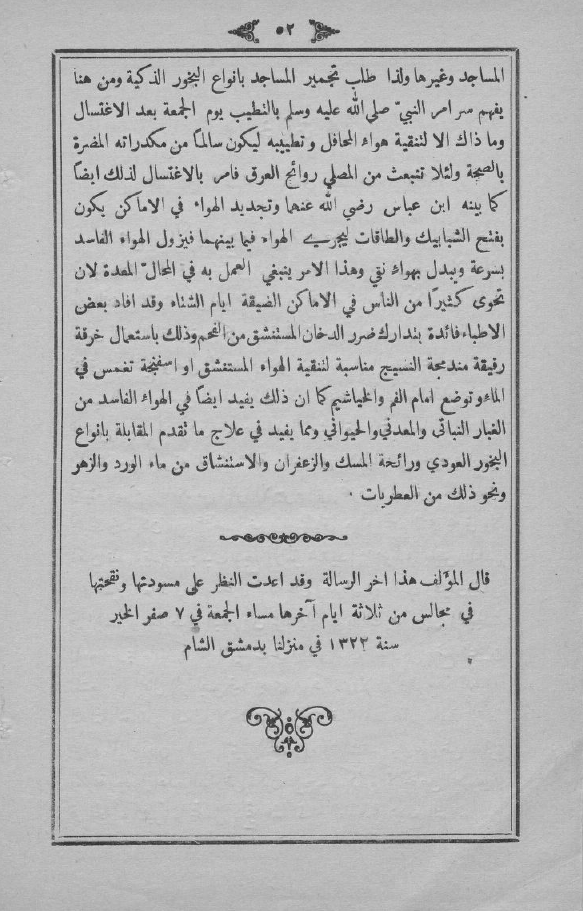 ٥٢
المساجد وغيرها ولذا طلب تجمير المساجد بانواع البخور الذكية ومن هنا
يفهم سر امر النبيّ صلى الله عليه وسلم بالتطيب يوم الجمعة بعد الاغتسال
وما ذاك الا لتنقية هواء المحافل وتطييبه ليكون سالمًا من مكدراته المضرة
بالصحة ولئلا تنبعث من المصلي روائح العرق فامر بالاغتسال لذلك ايضًا
كما بينه ابن عباس رضي الله عنهما وتجديد الهواء في الاماكن يكون
بفتح الشبابيك والطاقات ليجري الهواء فيما بينهما فيزول الهواء الفاسد
بسرعة ويبدل بهواء نقي وهذا الامر ينبغي العمل به في المحالّ المعدة لان
تحوى كثيرًا من الناس في الاماكن الضيقة ايام الشتاء وقد افاد بعض
الاطباء فائدة بتدارك ضرر الدخان المستنشق من الفحم وذلك باستعمال خرقة
رقيقة مندمجة النسيج مناسبة لتنقية الهواء المستنشق او اسفنجة تغمس في
الماء وتوضع امام الفم والخياشيم كما ان ذلك يفيد ايضًا في الهواء الفاسد من
الغبار النباتي والمعدني والحيواني ومما يفيد في علاج ما تقدم المقابلة بانواع
البخور العودي ورائحة المسك والزعفران والاستنشاق من ماء الورد والزهر
ونحو ذلك من العطريات ·
قال المؤلف هذا اخر الرسالة وقد اعدت النظر على مسودتها ونقحتها
في مجالس من ثلاثة ايام آخرها مساء الجمعة في ٧ صفر الخير
سنة ١٣٢٢ في منزلنا بدمشق الشام